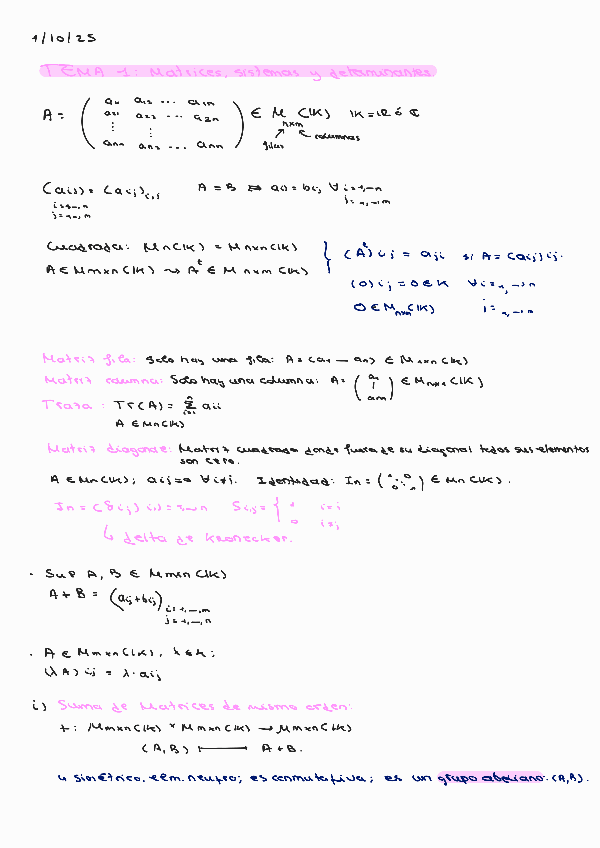 1/10/25
TEMA 1: Matrices, sistemas y determinantes
A = ( a11 a12 ... a1n ∈ M n×m (K) K = R ó C
a21 a22 ... a2n
⋮ ⋮
an1 an2 ... ann ) filas columnas
(aij) = (aij)i,j A = B ⇔ aij = bij ∀ i=1,…,n
i=1,…,n j=1,…,m
j=1,…,m
Cuadrada: Mn(K) = Mn×n(K)
A ∈ Mm×n(K) ⇝ A^t ∈ M n×m (K)
{ (A^t)ij = aji si A = (aij)ij.
(0)ij = 0 ∈ K ∀ i=1,…,n
0 ∈ Mn×m(K) j=1,…,n
Matriz fila: Solo hay una fila: A = (a1 — an) ∈ M1×n(K)
Matriz columna: Solo hay una columna: A = (a1 | am) ∈ Mm×1(K)
Traza: Tr(A) = Σ aii
A ∈ Mn(K)
Matriz diagonal: Matriz cuadrada donde fuera de su diagonal todos sus elementos
son cero.
A ∈ Mn(K); aij=0 ∀ i≠j. Identidad: In = (1 ⋱ 0 0 1) ∈ Mn(K).
In = (δij) i,j=1,…,n δi,j = { 1 i=j
0 i≠j
↳ delta de Kronecker.
· Sup A, B ∈ Mm×n(K)
A + B = (aij+bij) i=1,…,m
j=1,…,n
· A ∈ Mm×n(K), λ ∈ K:
(λA)ij = λ·aij
i) Suma de Matrices de mismo orden:
+: Mm×n(K) × Mm×n(K) → Mm×n(K)
(A,B) ⟼ A+B.
↳ simétrico, elem. neutro; es conmutativa; es un grupo abeliano.